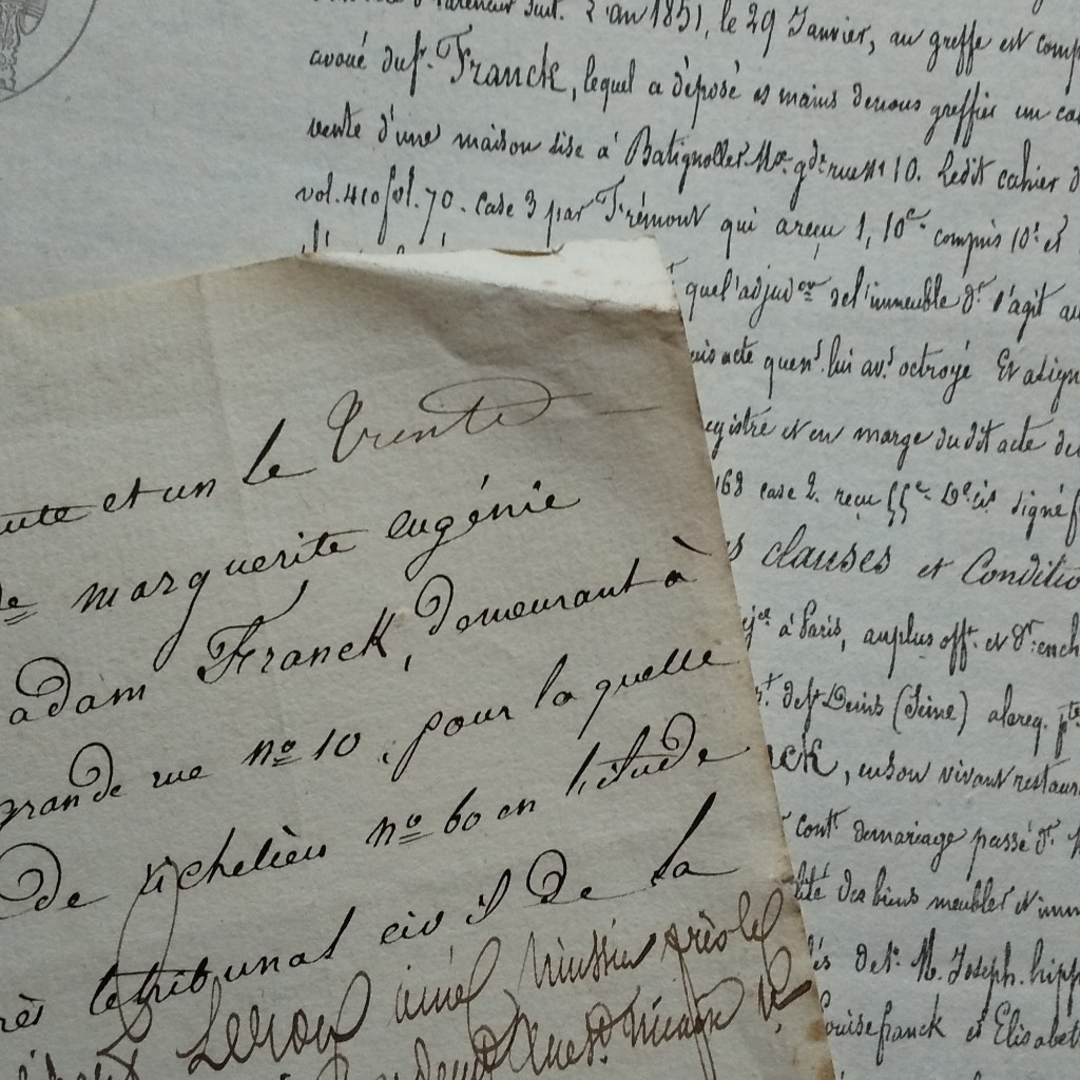 l'an 1851, le 29 Janvier, au greffe est comp
avoué du sr. Franck, lequel a déposé es mains de nous greffier un ca
vente d'une maison sise à Batignolles Mx. gde rue no 10. Ledit cahier d
vol. 410 fol. 70. case 3 par Frémont qui a reçu 1, 10c. compris 10c et
quel'adjudon del'immeuble dt s'agit au
acte quen. lui avt octroyé Et a sign
egistré et en marge dudit acte de
168 case 2. reçu 55c. Dc. signé f
s clauses et Conditio
à Paris, auplus offt. et dr. ench
de St Denis (Seine) alareq.
ck, enson vivant restaur
contt demariage passé dt.
des biens meubles et imm
de Mr. M. Joseph. hipp
Louise franck et Elisabet
ante et un le Trente
de marguerite eugénie
adam Franck, demeurant à
grande rue no 10, pour la quelle
de Richelieu no 60 en l'étude
rès le tribunal civil de la
Leroy aimé huissier près le